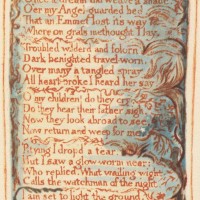 Once a dream did weave a shade
Oer my Angel-guarded bed,
That an Emmet lost its way
Where on grass methought I lay.
Troubled wilderd and folorn
Dark benighted travel-worn,
Over many a tangled spray
All heart-broke I heard her say.
O my children! do they cry,
Do they hear their father sigh.
Now they look abroad to see,
Now return and weep for me.
Pitying I drop'd a tear:
But I saw a glow-worm near:
Who replied. What wailing wight
Calls the watchman of the night.
I am set to light the ground,